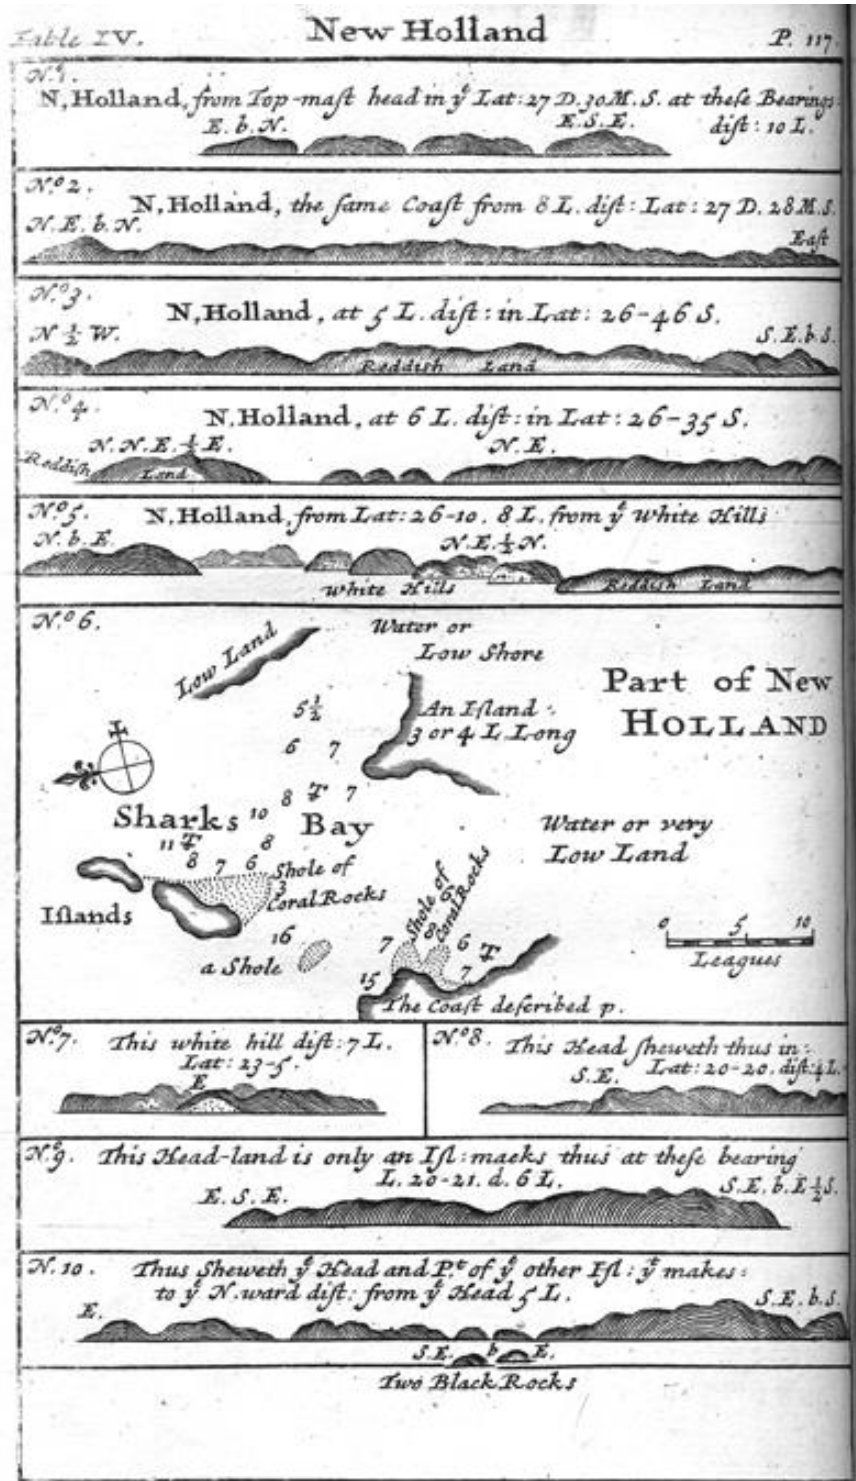 Table IV. New Holland P. 117.
No. 1.
N, Holland, from Top-maſt head in yͤ Lat: 27 D. 30 M. S. at theſe Bearings
E. b. N. E. S. E. diſt: 10 L.
No. 2.
N, Holland, the ſame Coaſt from 8 L. diſt: Lat: 27 D. 28 M. S.
N. E. b. N. Eaſt
No. 3.
N, Holland, at 5 L. diſt: in Lat: 26-46 S.
N ½ W. S. E. b S.
Reddiſh Land
No. 4
N, Holland, at 6 L. diſt: in Lat: 26-35 S.
N. N. E. ½ E. N. E.
Reddiſh Land
No. 5.
N, Holland, from Lat: 26-10. 8 L. from yͤ White Hills
N. b. E. N. E. ½ N.
White Hills Reddiſh Land
No. 6.
Low Land
Water or
Low Shore
Part of New
HOLLAND
5 ½
An Iſland
3 or 4 L Long
6 7
8 7
Sharks Bay
10
11 8
8 7 6
Shole of
3
Coral Rocks
Water or very
Low Land
Iſlands
16
a Shole
Shole of
Coral Rocks
7 8 6 6
15 7
0 5 10
Leagues
The Coaſt deſcribed p.
No. 7. This white hill diſt: 7 L.
Lat: 23-5.
E
No. 8. This Head ſheweth thus in:
S. E. Lat: 20-20. diſt: 4 L.
No. 9. This Head-land is only an Iſl: maeks thus at theſe bearing
L. 20-21. d. 6 L.
E. S. E. S. E. b. E ½ S.
N. 10. Thus Sheweth yͤ Head and P.ᵗ of yͤ other Iſl: yᵗ makes:
to yͤ N. ward diſt: from yͤ Head 5 L.
E. S. E. b. S.
S. E. b E.
Two Black Rocks